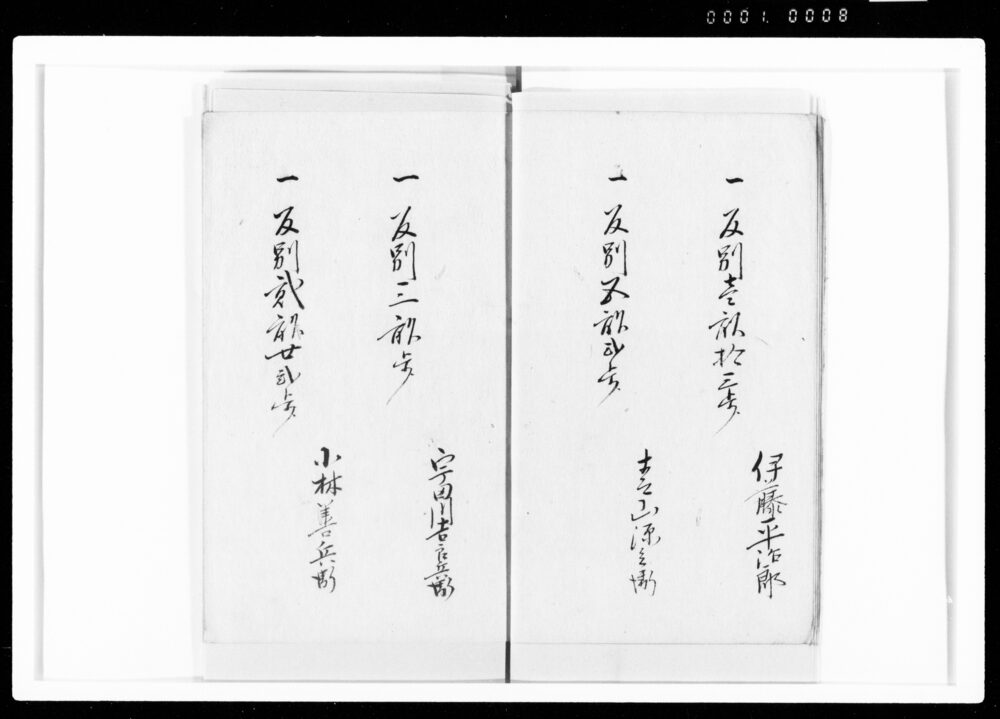 0001.0008
一 反別壱畝拾三歩
伊藤平治郎
一 反別五畝弐歩
青山源兵衛
一 反別三畝歩
宇田川吉兵衛
一 反別貮畝廿弐歩
小林善兵衛